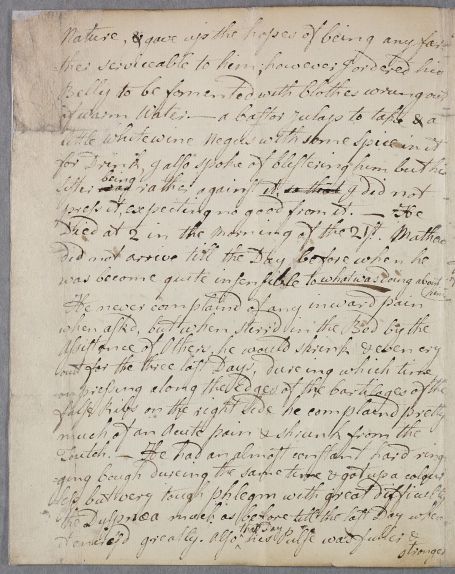 Nature, & gave up the hopes of being any far-
ther serviceable to him; however I ordered his
Belly to be fomented with Clothes wrung out
of warm Water. — a Castor Julap to take & a
little Whitewine Negus with some Spice in it
for Drink I also spoke of blistering him but his
Sister being rather against it, I did not
press it, expecting no good from it. — He
Died at 2 in the Morning of the 21st. Mather
did not arrive till the Day before when he
was become quite insensible to what was doing about him
He never complaind of any inward pain
when asked, but when stirrd in the Bed by the
Assistance of Others, he would shrink & even cry
out for the three last Days, dureing which time
on pressing along the Edges of the Cartilages of the
false Ribs on the right Side he complaind pretty
much of an Acute pain & shrunk from the
Touch. — He had an almost constant hard ring-
ging Cough dureing the same time & got up a colour
less but very tough phlegm with great difficulty
the Dyspnœa much as before till the last Day when
it greatly. Also that Day his Pulse was fuller &
stronger